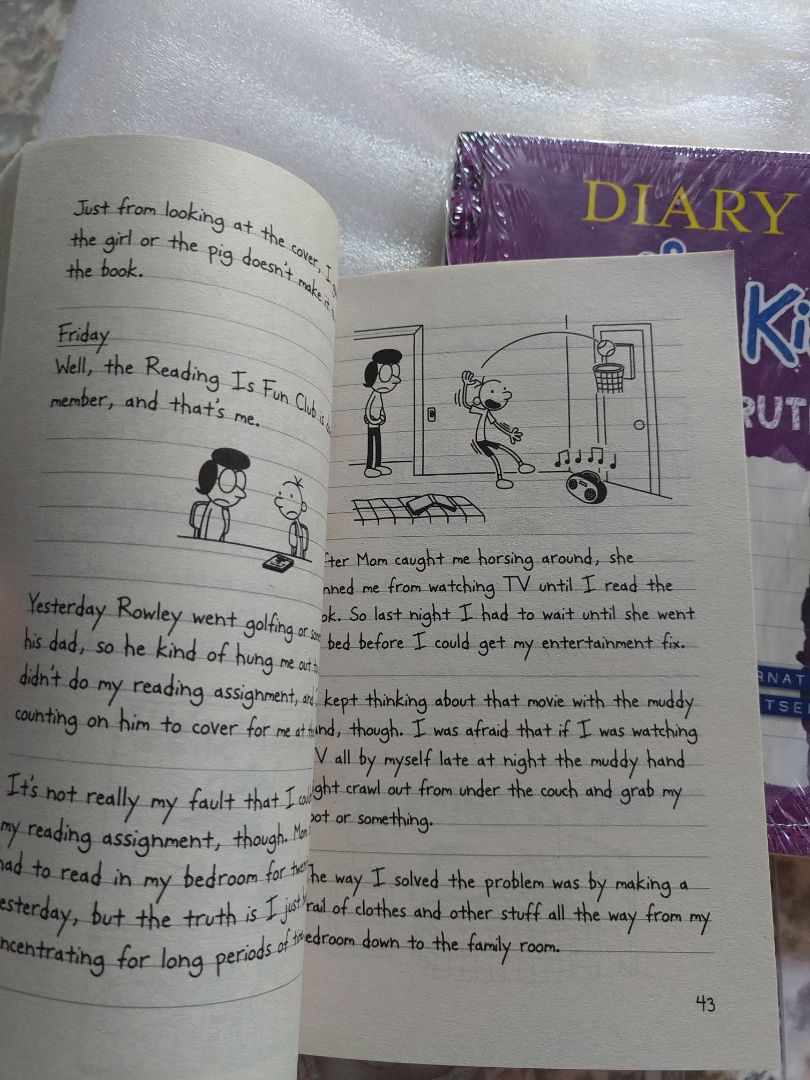 Just from looking at the cover, I
the girl or the pig doesn't make it
the book.
Friday
Well, the Reading Is Fun Club is
member, and that's me.
Yesterday Rowley went golfing or
his dad, so he kind of hung me out
didn't do my reading assignment, and
counting on him to cover for me at
It's not really my fault that I
my reading assignment, though. Mom
had to read in my bedroom for
esterday, but the truth is I just
ncentrating for long periods of
fter Mom caught me horsing around, she
nned me from watching TV until I read the
ok. So last night I had to wait until she went
bed before I could get my entertainment fix.
kept thinking about that movie with the muddy
and, though. I was afraid that if I was watching
V all by myself late at night the muddy hand
ght crawl out from under the couch and grab my
oot or something.
The way I solved the problem was by making a
rail of clothes and other stuff all the way from my
edroom down to the family room.
43
DIARY
Ki
RUT
ERNAT
TSE